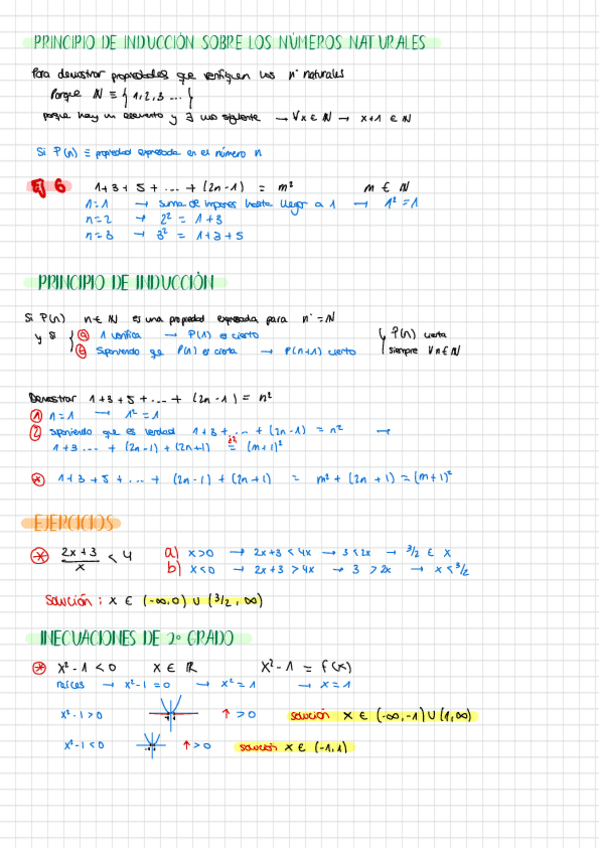 PRINCIPIO DE INDUCCIÓN SOBRE LOS NÚMEROS NATURALES
Para demostrar propiedades que verifiquen los nº naturales
Porque ℕ ≡ {1, 2, 3 ... }
porque hay un elemento y ∃ uno siguiente → ∀x ∈ ℕ → x+1 ∈ ℕ
Si P(n) ≡ propiedad expresada en el número n
Ej 6 1+3+5+ ... + (2n-1) = m² m ∈ ℕ
n=1 → suma de impares hasta llegar a 1 → 1² = 1
n=2 → 2² = 1+3
n=3 → 3² = 1+3+5
PRINCIPIO DE INDUCCIÓN
Si P(n) n ∈ ℕ es una propiedad expresada para nº = ℕ
y si { ① 1 verifica → P(1) es cierto } P(n) cierta
② Suponiendo que P(n) es cierta → P(n+1) cierto siempre ∀n ∈ ℕ
Demostrar 1+3+5+ ... + (2n-1) = n²
① n=1 → 1² = 1
② Suponiendo que es verdad 1+3+ ... + (2n-1) = n² →
1+3 ... + (2n-1) + (2n+1) = (m+1)²
1+3+5+ ... + (2n-1) + (2n+1) = m² + (2n+1) = (m+1)²
EJERCICIOS
2x+3/x < 4 a) x>0 → 2x+3 < 4x → 3 < 2x → 3/2 ∈ x
b) x<0 → 2x+3 > 4x → 3 > 2x → x < 3/2
Solución : x ∈ (-∞,0) ∪ (3/2, ∞)
INECUACIONES DE 2º GRADO
x²-1 < 0 x ∈ ℝ x²-1 = f(x)
raíces → x²-1=0 → x²=1 → x=1
x²-1>0 ↑ >0 solución x ∈ (-∞,-1) ∪ (1,∞)
x²-1<0 ↑ >0 solución x ∈ (-1,1)